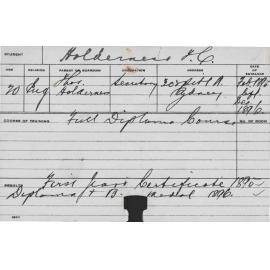 STUDENT Holderness T. C.
AGE RELIGION PARENT OR GUARDIAN OCCUPATION ADDRESS DATE OF ENTRANCE
20 Eng Thos. Holderness Secretary Pitt St. Sydney Feb 1895
Sept
Dec 1896
COURSE OF TRAINING Full Diploma Course NO. OF ROOM
RESULTS First Years Certificate 1895
Diploma & B. medal 1896